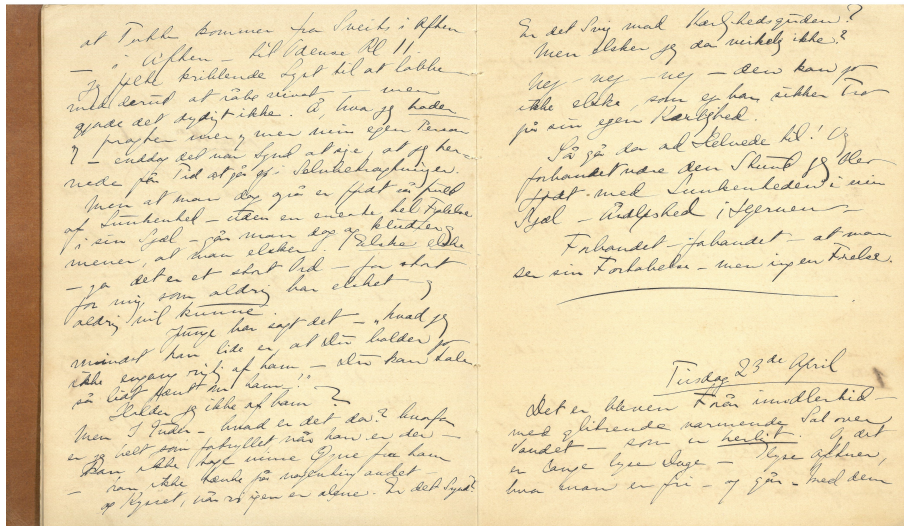 at Tukke kommer fra Sveits i Aften
— i Aften — til Odense Kl 11.
Jeg følte kriblende Lyst til at løbe
med derud at råbe vivat — men
gjorde det dydigt ikke. Å, hvor jeg hader
foragter mer og mer min egen Person
? — endda det var Synd at sige, at jeg her-
nede får Tid at gå op i Selvbetragtninger.
Men at man dog også er født så fuld
af Lunkenhed — uden en eneste hel Følelse
i sin Sjæl — går man dog og kludrer
mener, at man elsker. Elske elske
— ja det er et stort Ord — for stort
for mig, som aldrig har elsket — og
aldrig vil kunne.
har sagt det — "hvad jeg
mindst kan lide er, at Du holder jo
ikke engang rigtig af ham — Du kan tale
så lidt pænt om ham!"
Holder jeg ikke af ham?
Men I Guder — hvad er det da? hvorfor
er jeg helt som fortryllet når han er der —
kan ikke tage mine Øjne fra ham
— kan ikke tænke på nogenting andet —
og Kysset, når vi igen er alene. Er det Synd?
Er det Svig mod Kærlighedsguden?
Men elsker jeg da virkelig ikke?
Nej — nej — nej — den kan jo
ikke elske, som ej har sikker Tro
på sin egen Kærlighed.
Så gå da ad Helvede til! Og
forbandet være den Stund jeg blev
født med Lunkenheden i min
Sjæl — Rådløshed i Hjernen —
Forbandet — forbandet — at man
ser sin Fortabelse — men ingen Frelse.
Tirsdag 23de April
Det er bleven Forår imidlertid —
med glitrende varmende Sol over
Vandet — som er herligt. Og det
er lange lyse Dage — lyse Aftner,
hvor man er fri — og går — med dem